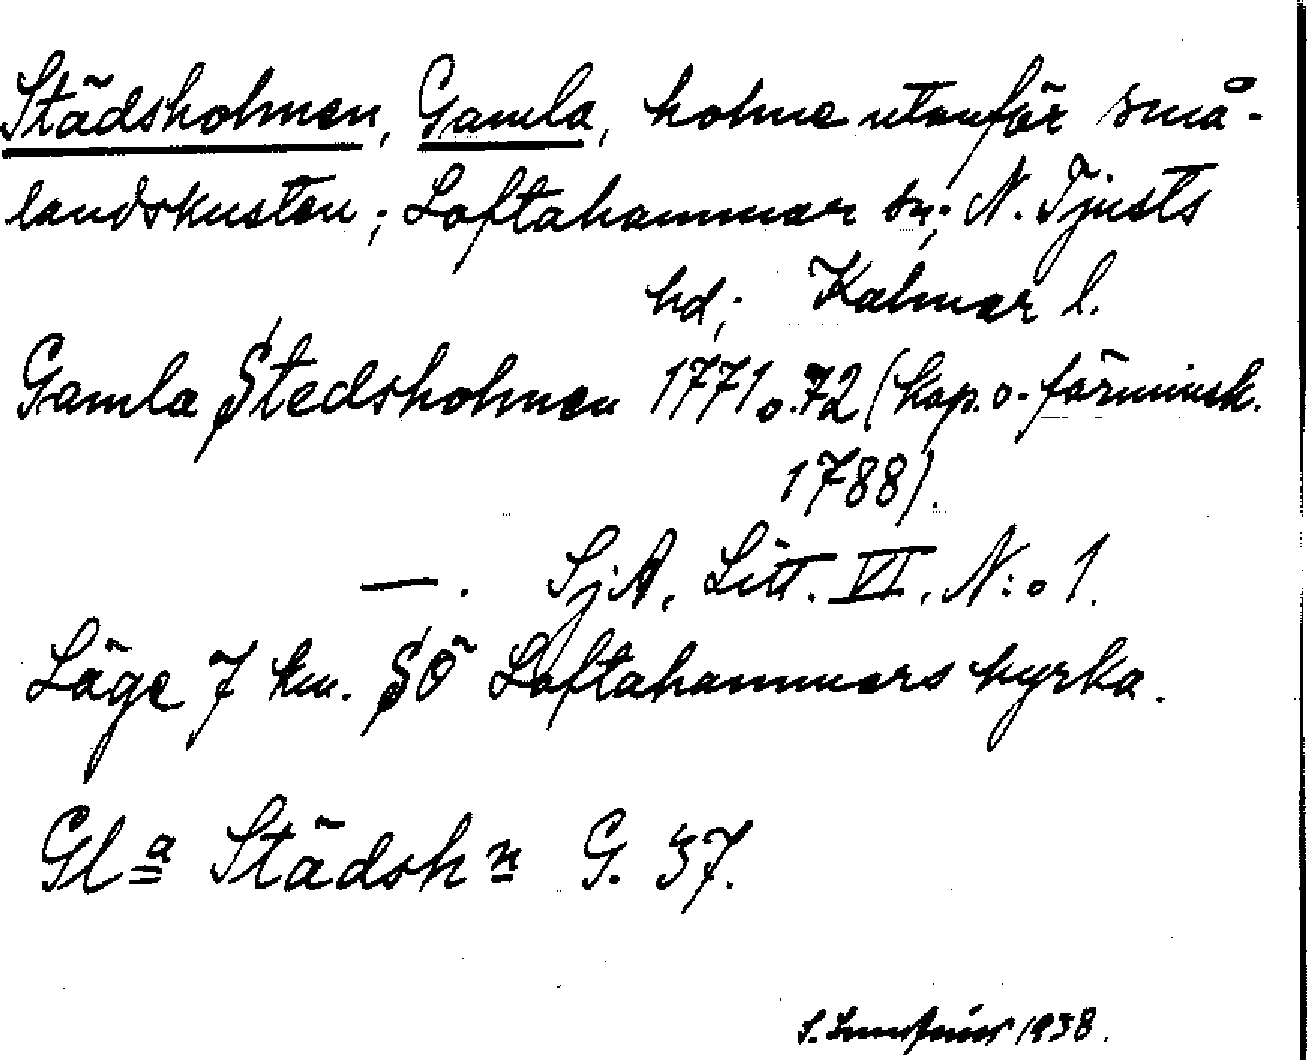 Städsholmen, Gamla, holme utanför små-
landskusten; Loftahammar sn; N. Tjusts
hd; Kalmar l.
Gamla Stedsholmen 1771 o. 72 (kop. o. förminsk.
1788).
—. SjA, Litt. VI, N:o 1.
Läge 7 km. SÖ Loftahammars kyrka.
Gla Städshn G. 37.
S. 1938.